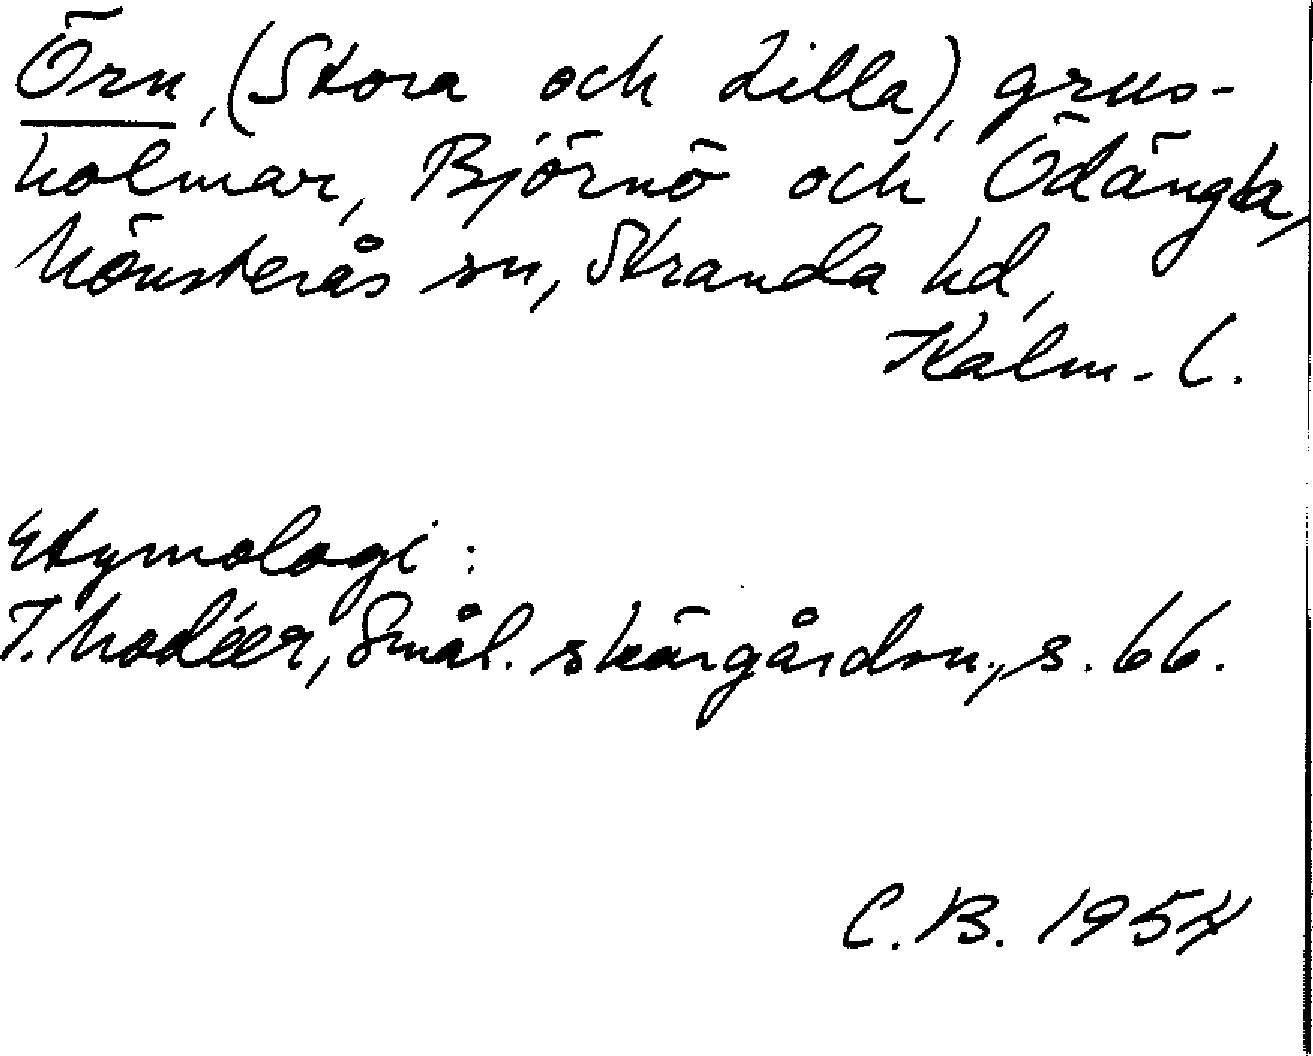 Örn, (Stora och Lilla), grus-
holmar, Björnö och Ödängla,
Mönsterås sn, Stranda hd,
Kalm. l.
Etymologi:
I. Modéer, Smål. skärgårdsn., s. 66.
C. B. 1954